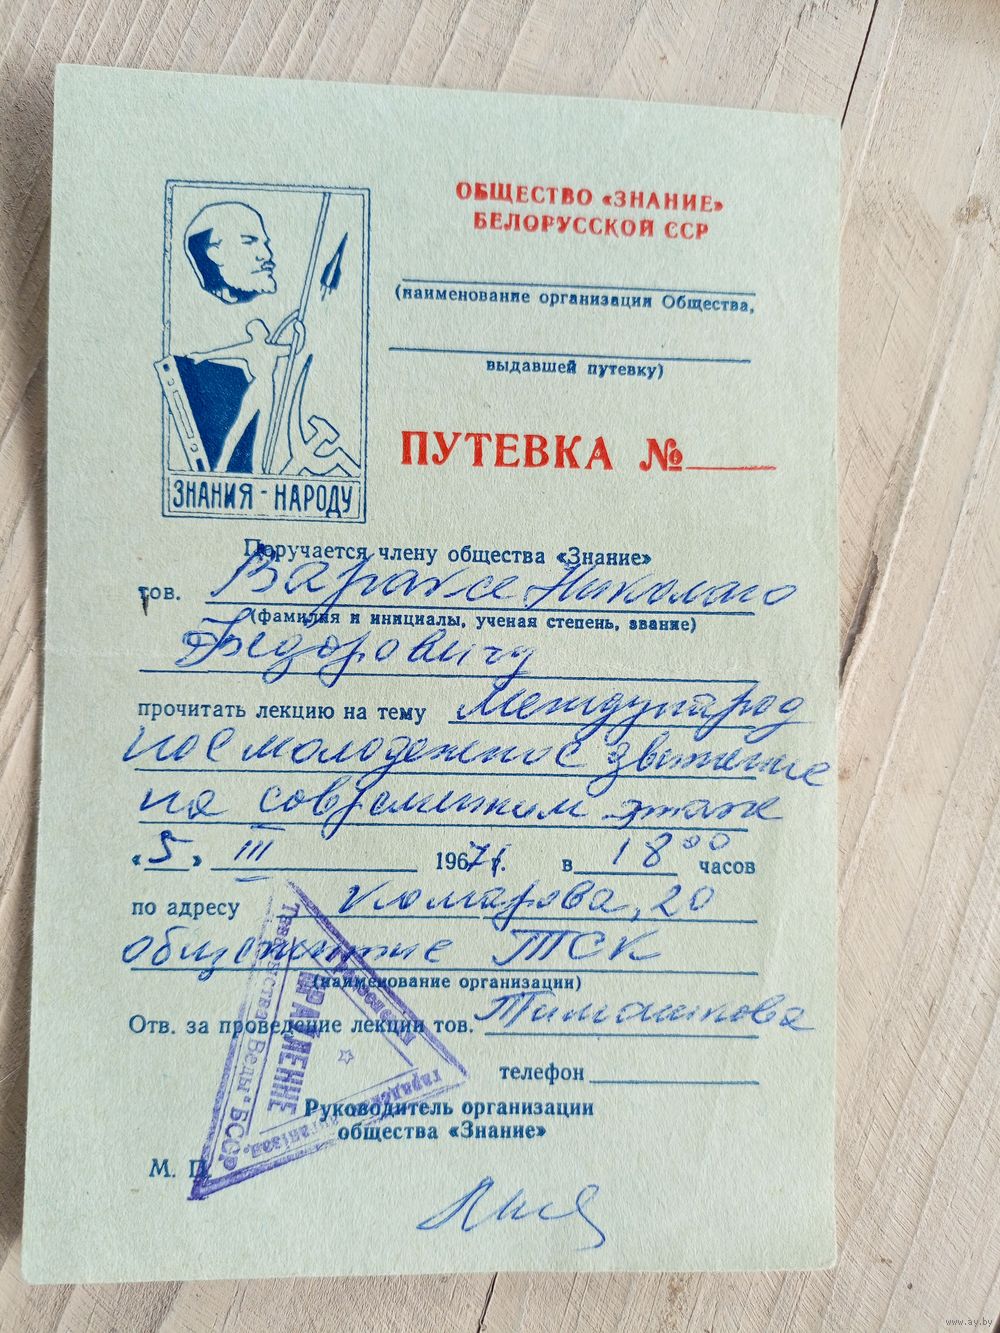 ОБЩЕСТВО «ЗНАНИЕ»
БЕЛОРУССКОЙ ССР
(наименование организации Общества,
выдавшей путевку)
ПУТЕВКА №
ЗНАНИЯ - НАРОДУ
Поручается члену общества «Знание»
тов. Вараксе Николаю
(фамилия и инициалы, ученая степень, звание)
Федоровичу
прочитать лекцию на тему Международ
ное молодежное движение
на современном этапе
«5» III 1967 г. в 18 00 часов
по адресу Комарова, 20
общежитие ТСК
(наименование организации)
Отв. за проведение лекции тов. Тимошкова
телефон
Руководитель организации
общества «Знание»
М. П.
ПРАЎЛЕННЕ
гарадской арганізац.
таварыства "Веды" БССР
www.ay.by